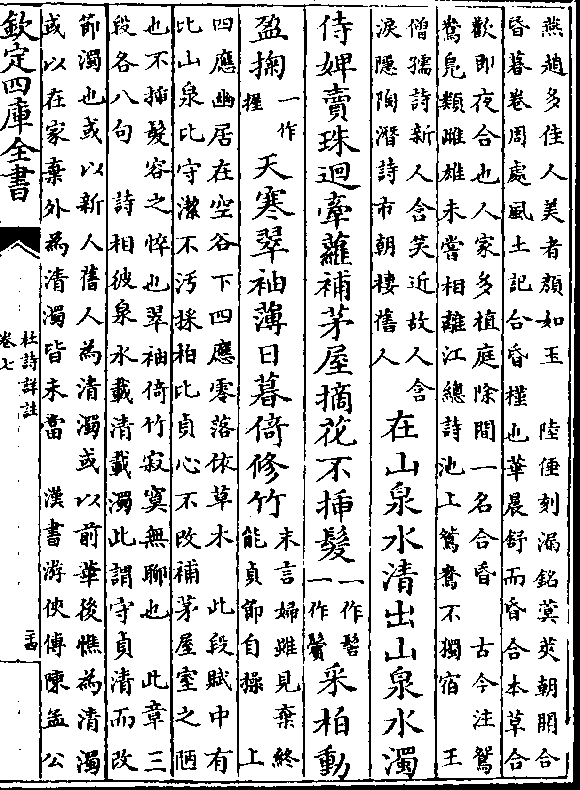 燕趙多佳人美者顏如玉　陸倕刻漏銘蓂莢朝開合
昏暮卷周處風土記合昏槿也華晨舒而昏合本草合
歡即夜合也人家多植庭除間一名合昏　古今注鴛
鴦鳧類雌雄未嘗相離江總詩池上鴛鴦不獨宿　王
僧孺詩新人含笑近故人含
淚隱陶潛詩市朝棲舊人
在山泉水清出山泉水濁
侍婢賣珠迴牽蘿補茅屋摘花不插髮
一作髻
一作鬢
采柏動
盈掬
一作
握
天寒翠袖薄日暮倚修竹
末言婦雖見棄終
能貞節自操　上
四應幽居在空谷下四應零落依草木　此段賦中有
比山泉比守潔不污採柏比貞心不改補茅屋室之陋
也不插髮容之悴也翠袖倚竹寂寞無聊也　此章三
段各八句　詩相彼泉水載清載濁此謂守貞清而改
節濁也或以新人舊人為清濁或以前華後憔為清濁
或以在家棄外為清濁皆未當　漢書游俠傳陳孟公
欽定四庫全書
杜詩詳註
卷七
二十四